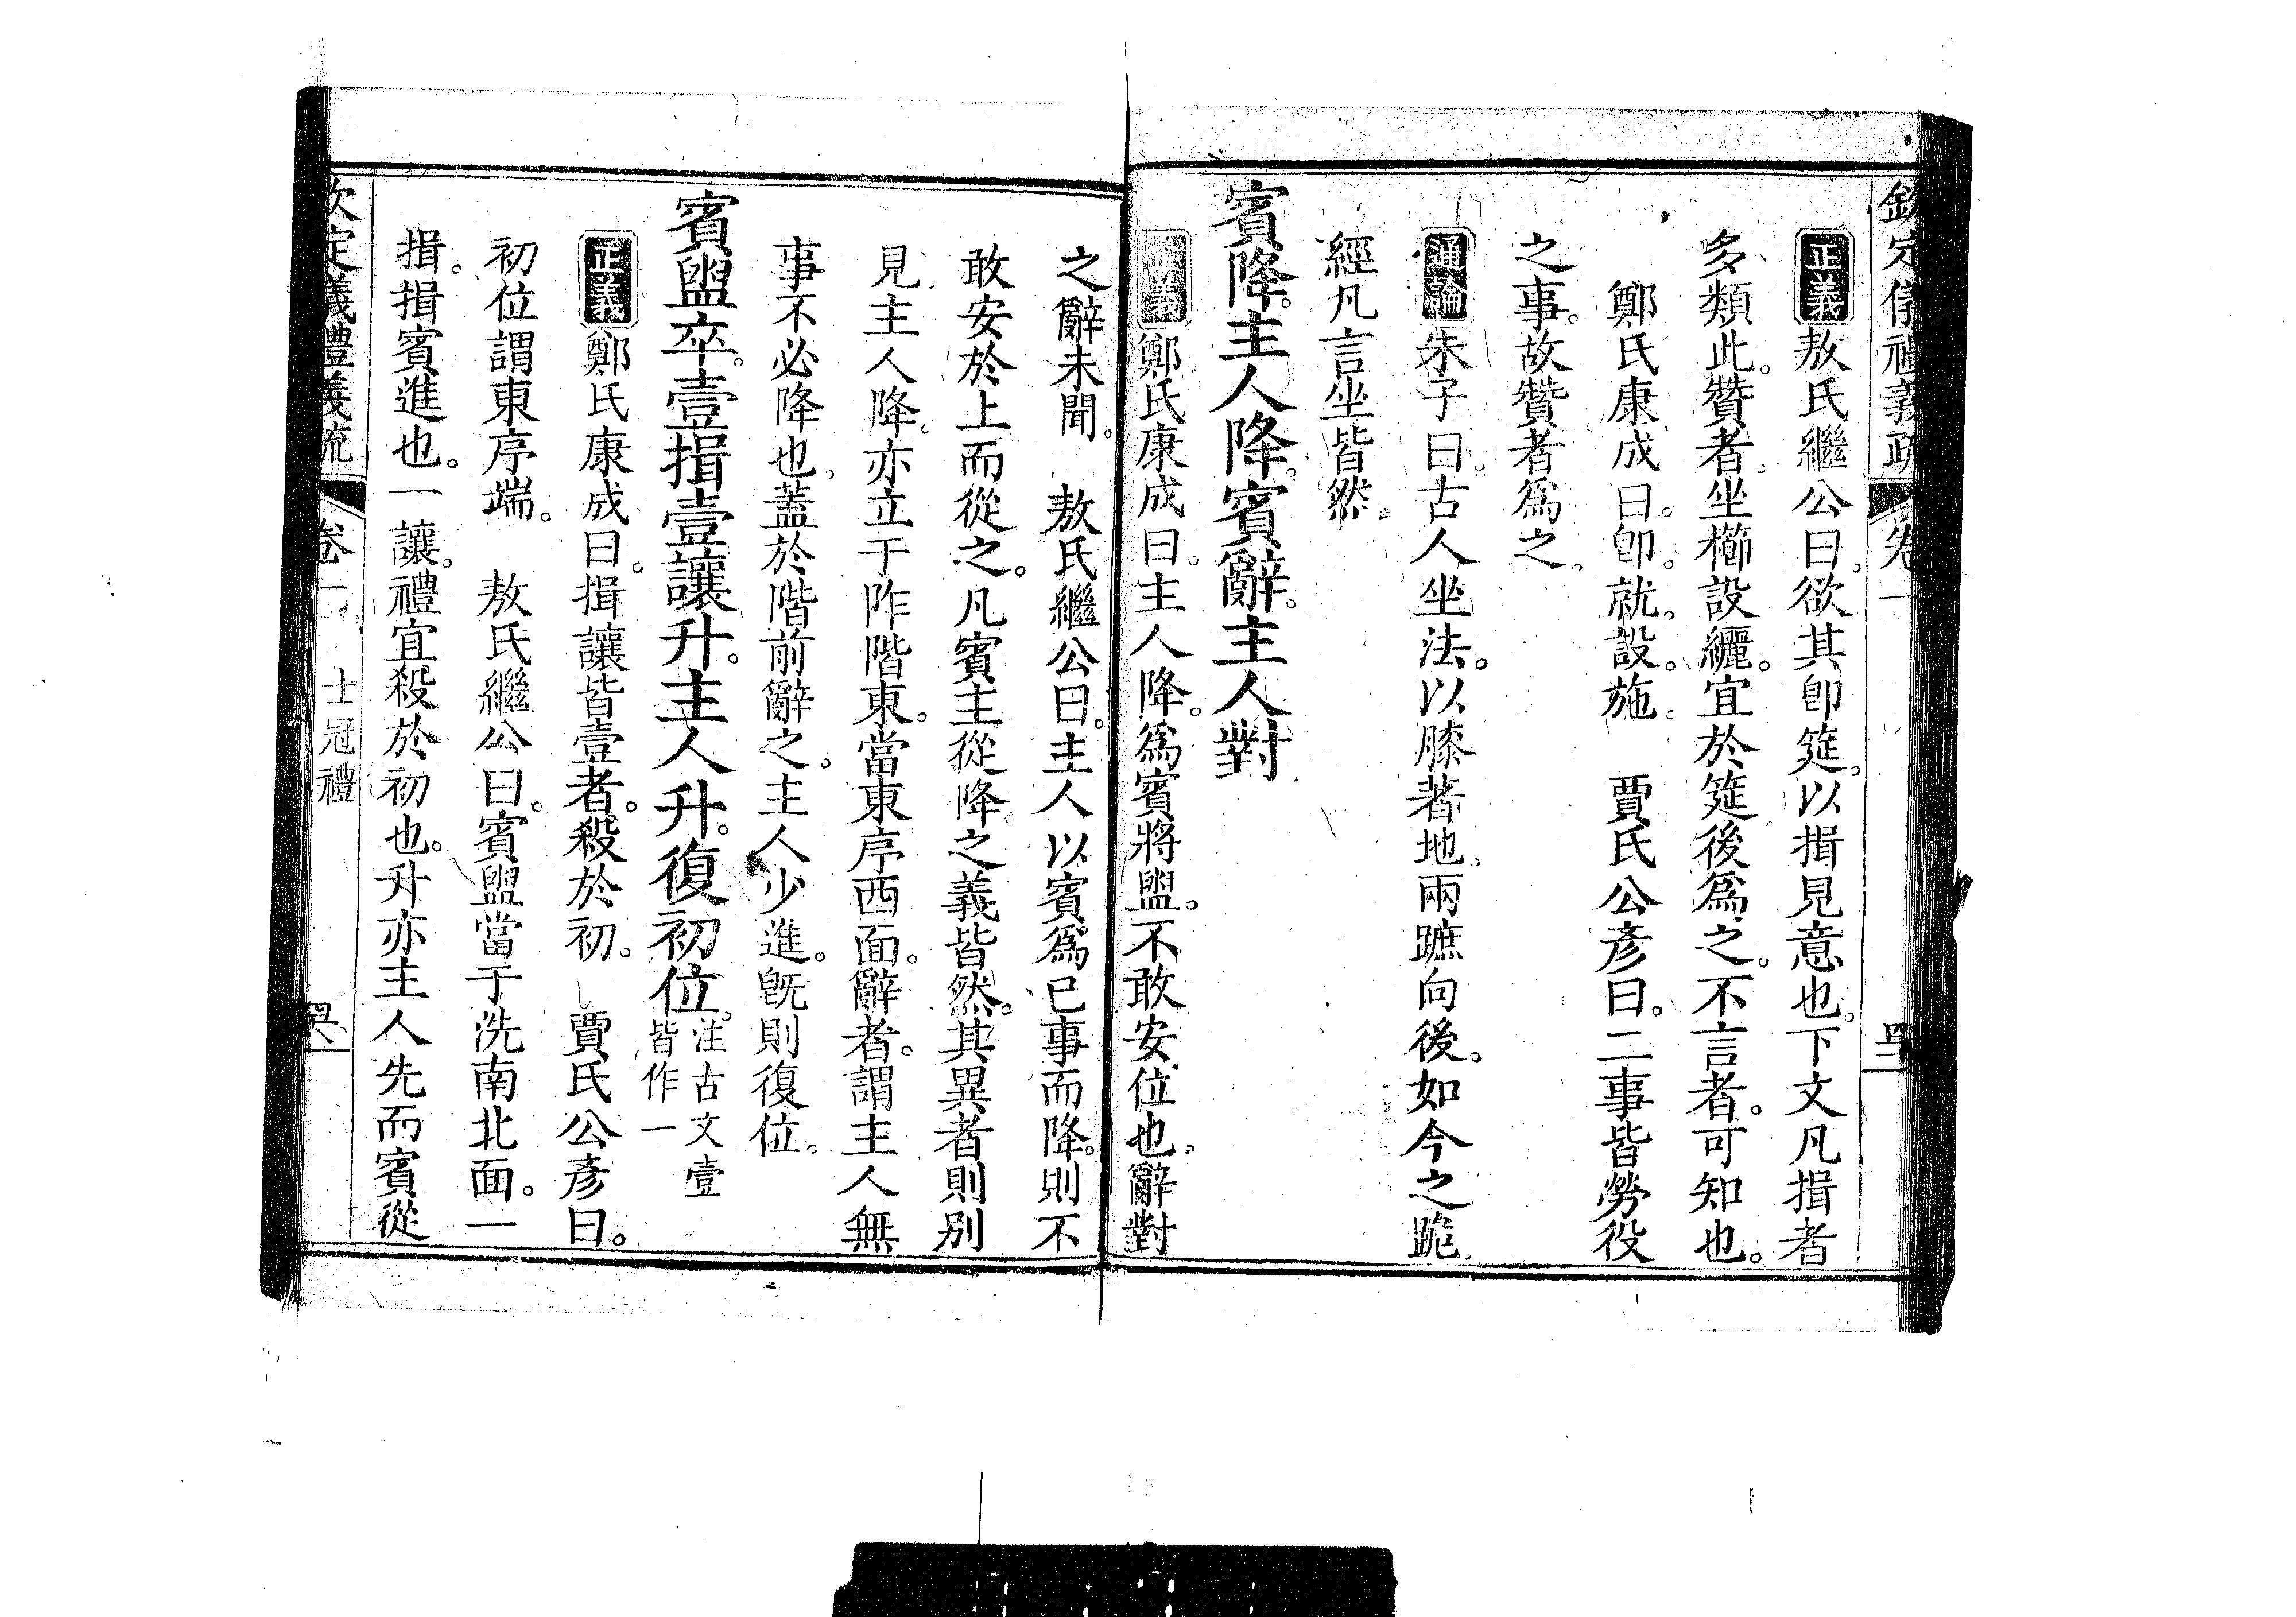 欽定儀禮義疏 卷一
正義敖氏繼公曰。欲其卽筵。以揖見意也。下文凡揖者
多類此。贊者。坐櫛設纚。宜於筵後爲之。不言者。可知也。
鄭氏康成曰。卽。就。設。施。 賈氏公彥曰。二事皆勞役
之事。故贊者爲之。
通論朱子曰。古人坐法。以膝著地。兩蹠向後。如今之跪。
經凡言坐皆然。
賓降。主人降。賓辭。主人對
正義鄭氏康成曰。主人降。爲賓將盥。不敢安位也。辭對
之辭未聞。 敖氏繼公曰。主人以賓爲已事而降。則不
敢安於上而從之。凡賓主從降之義皆然。其異者則别
見主人降。亦立于阼階東。當東序西面。辭者。謂主人無
事不必降也。蓋於階前辭之。主人少進。旣則復位。
賓盥卒。壹揖壹讓升。主人升。復初位。注古文壹皆作一
正義鄭氏康成曰。揖讓皆壹者。殺於初。 賈氏公彥曰。
初位謂東序端。 敖氏繼公曰。賓盥當于洗南北面。一
揖。揖賓進也。一讓。禮宜殺於初也。升亦主人先而賓從
欽定儀禮義疏 卷一 士冠禮